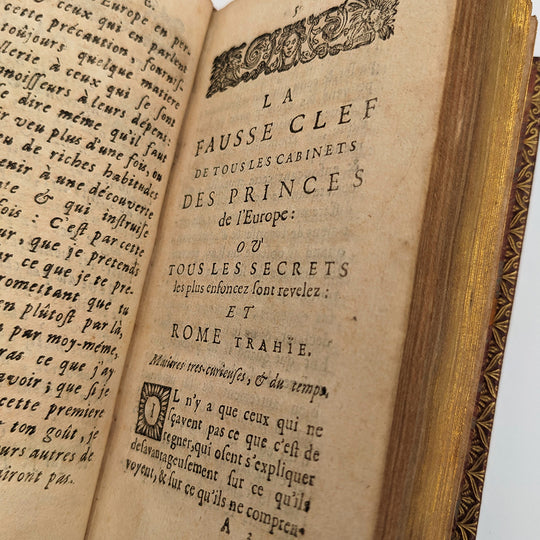 C.
Europe en per-
ceux qui en parlent
cette précaution, fourniss-
toujours quelque matiere
llerie à ceux qui se sont
nnoisseurs à leurs dépens:
se dire même qu'il faut
ir veu plus d'une fois, ou
eu de riches habitudes
enir à une découverte
nte & qui instruise
fois: C'est par cette
ur, que je pretends
r ce que je te pre-
romettant que tu
en plûtost par là,
s par moy-même,
ras ce que j'ay
avoir; que si je
cette premiere
ton goût, je
urs autres de
iront pas.
5
LA
FAUSSE CLEF
DE TOUS LES CABINETS
DES PRINCES
de l'Europe:
OU
TOUS LES SECRETS
les plus enfoncez sont revelez:
ET
ROME TRAHÏE.
Matieres tres-curieuses, & du temps.
IL n'y a que ceux qui ne
sçavent pas ce que c'est de
regner, qui osent s'expliquer
desavantageusement sur ce qu'ils
voyent, & sur ce qu'ils ne compren-
A